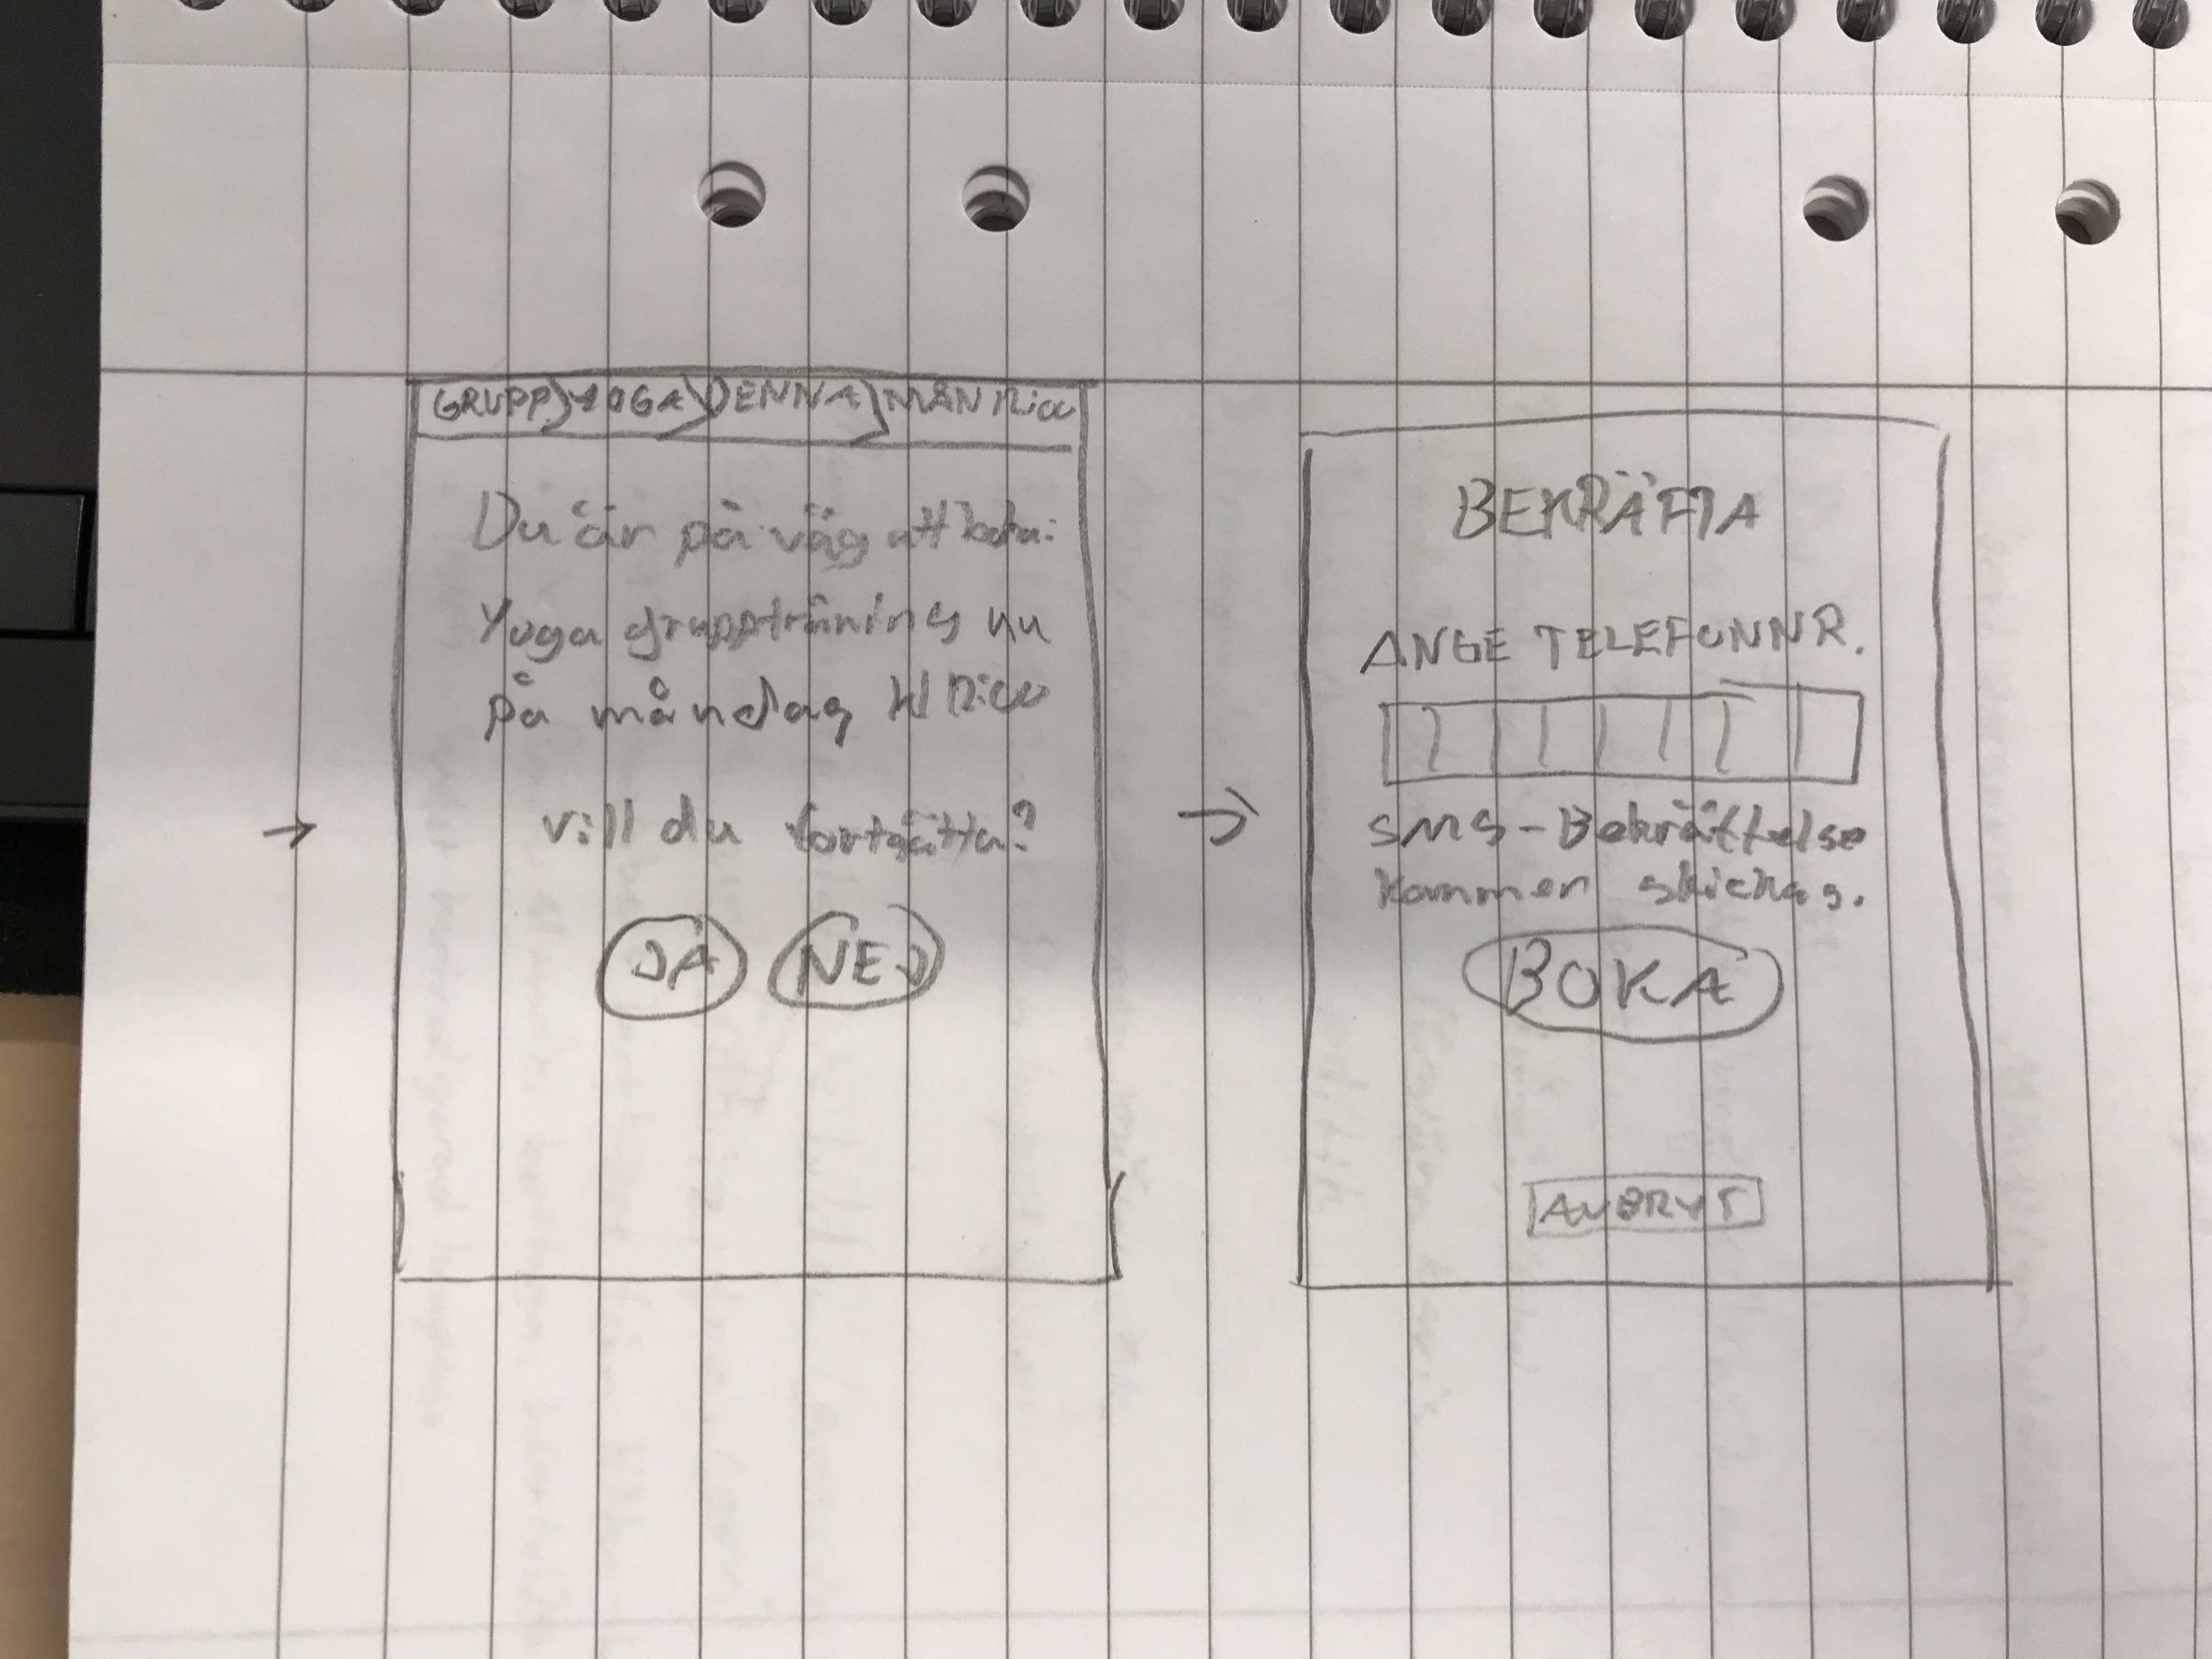 GRUPP YOGA DENNA MÅN
Du är på väg att boka:
Yoga gruppträning nu
på måndag kl
vill du fortsätta?
JA NEJ
BEKRÄFTA
ANGE TELEFONNR.
SMS-Bekräftelse
kommer skickas.
BOKA
AVBRYT